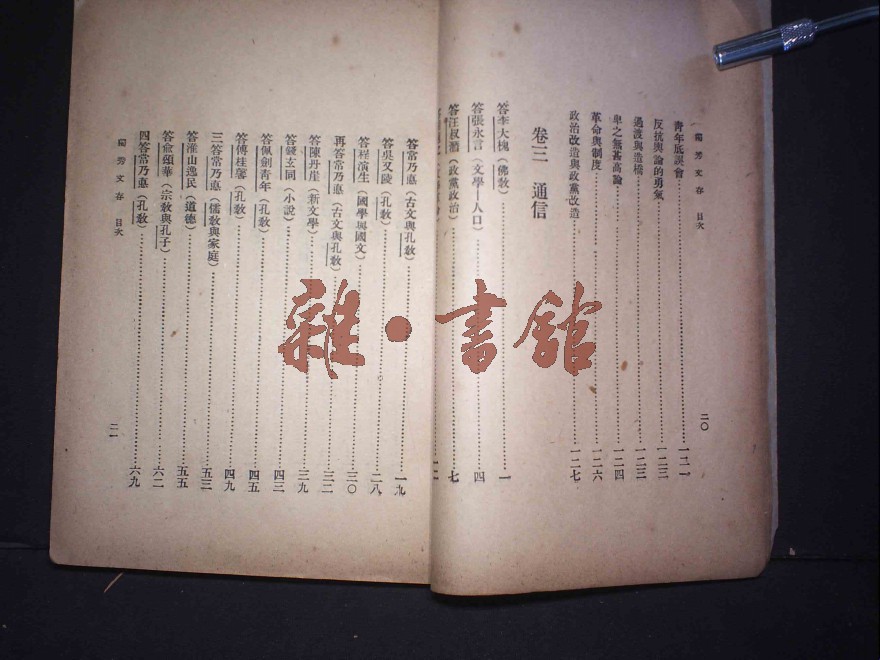 獨秀文存　目次
二〇
青年底誤會……一二一
反抗輿論的勇氣……一二三
過渡與造橋……一二三
卑之無甚高論……一二四
革命與制度……一二六
政治改造與政黨改造……一二七
卷三　通信
答李大槐（佛教）……一
答張永言（文學—人口）……四
答汪叔潛（政黨政治）……七
答常乃悳（古文與孔教）……一九
答吳又陵（孔教）……二八
答程演生（國學與國文）……三〇
再答常乃悳（古文與孔教）……三二
答陳丹崖（新文學）……三九
答錢玄同（小說）……四三
答佩劍青年（孔教）……四五
答傅桂馨（孔教）……四九
三答常乃悳（儒教與家庭）……五三
答淮山逸民（道德）……五五
答俞頌華（宗教與孔子）……六二
四答常乃悳（孔教）……六九
獨秀文存　目次
二一
雜·書館